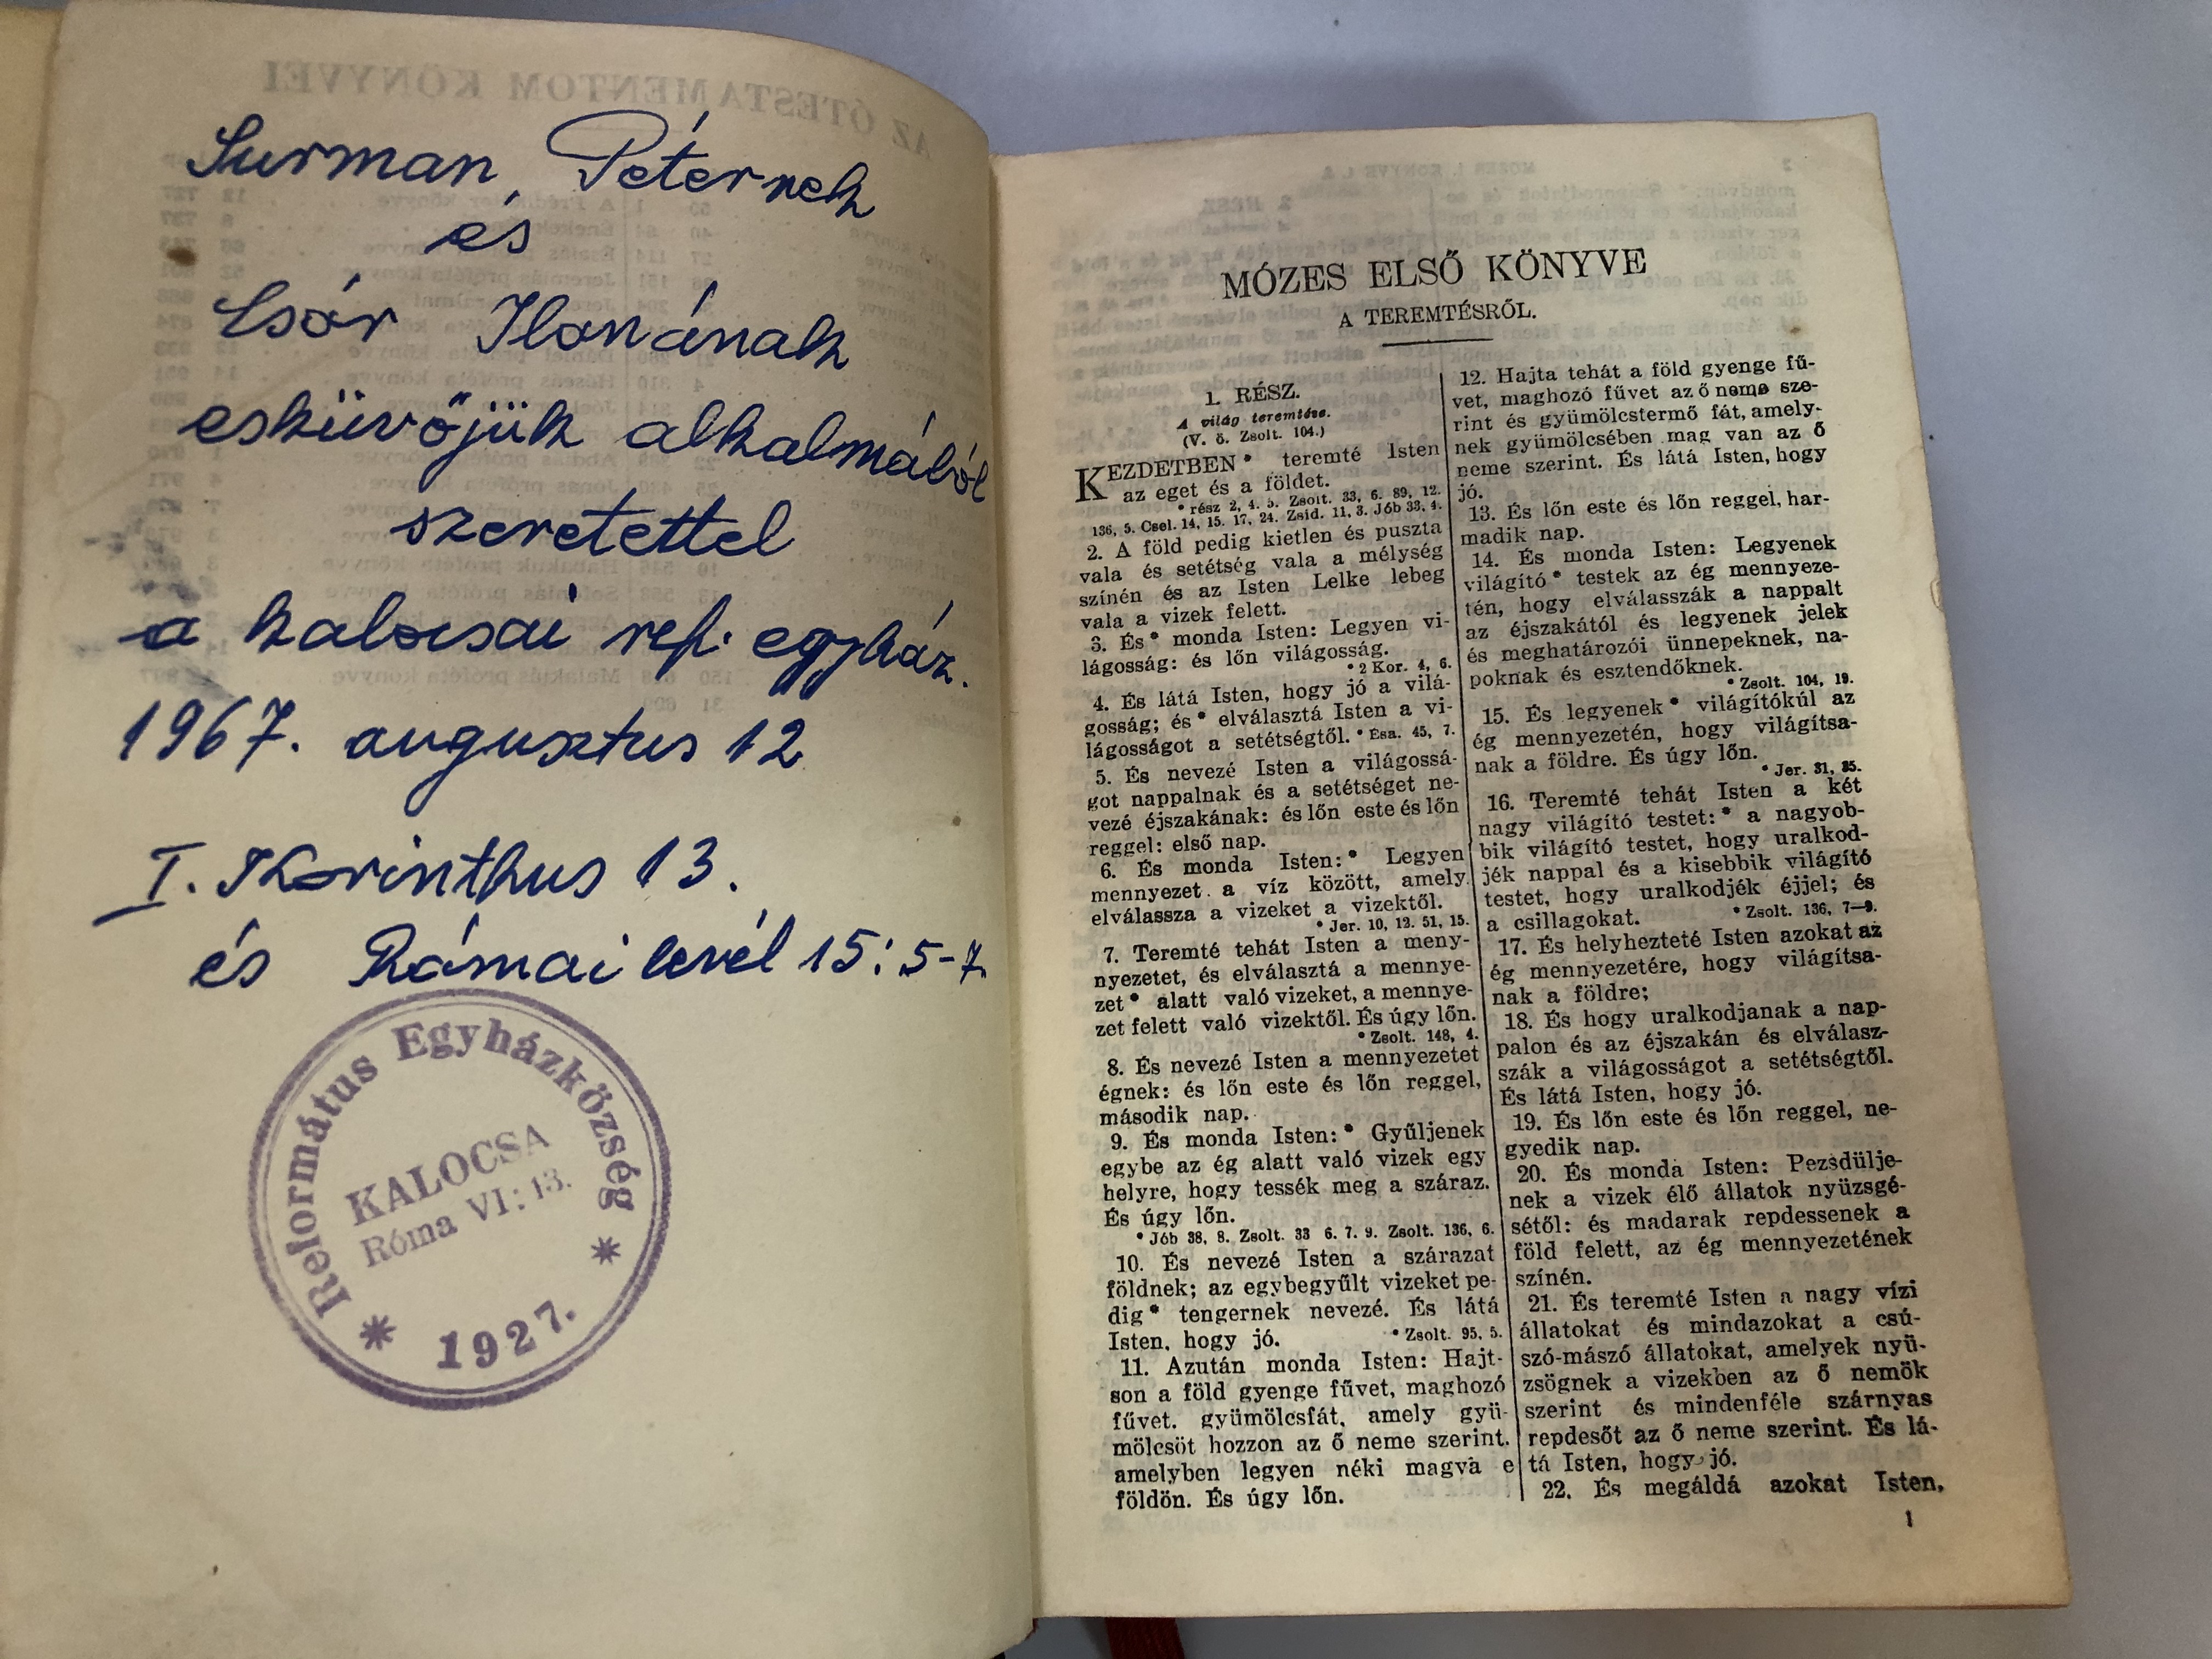 Surman Péternek
és
Csór Ilonának
esküvőjük alkalmából
szeretettel
a kalocsai ref. egyház.
1967. augusztus 12
I. Korinthus 13.
és Római levél 15:5-7.
Református Egyházközség
KALOCSA
Róma VI: 13.
* 1927. *
MÓZES ELSŐ KÖNYVE
A TEREMTÉSRŐL.
1. RÉSZ.
A világ teremtése.
(V. ö. Zsolt. 104.)
KEZDETBEN* teremté Isten
az eget és a földet.
* rész 2, 4. 5. Zsolt. 33, 6. 89, 12.
136, 5. Csel. 14, 15. 17, 24. Zsid. 11, 3. Jób 33, 4.
2. A föld pedig kietlen és puszta
vala és setétség vala a mélység
színén és az Isten Lelke lebeg
vala a vizek felett.
3. És* monda Isten: Legyen vi-
lágosság: és lőn világosság.
* 2 Kor. 4, 6.
4. És látá Isten, hogy jó a vilá-
gosság; és* elválasztá Isten a vi-
lágosságot a setétségtől. * Ésa. 45, 7.
5. És nevezé Isten a világossá-
got nappalnak és a setétséget ne-
vezé éjszakának: és lőn este és lőn
reggel: első nap.
6. És monda Isten:* Legyen
mennyezet a víz között, amely
elválassza a vizeket a vizektől.
* Jer. 10, 12. 51, 15.
7. Teremté tehát Isten a meny-
nyezetet, és elválasztá a mennye-
zet* alatt való vizeket, a mennye-
zet felett való vizektől. És úgy lőn.
* Zsolt. 148, 4.
8. És nevezé Isten a mennyezetet
égnek: és lőn este és lőn reggel,
második nap.
9. És monda Isten:* Gyűljenek
egybe az ég alatt való vizek egy
helyre, hogy tessék meg a száraz.
És úgy lőn.
* Jób 38, 8. Zsolt. 33 6. 7. 9. Zsolt. 136, 6.
10. És nevezé Isten a szárazat
földnek; az egybegyűlt vizeket pe-
dig* tengernek nevezé. És látá
Isten, hogy jó. * Zsolt. 95, 5.
11. Azután monda Isten: Hajt-
son a föld gyenge fűvet, maghozó
fűvet, gyümölcsfát, amely gyü-
mölcsöt hozzon az ő neme szerint,
amelyben legyen néki magva e
földön. És úgy lőn.
12. Hajta tehát a föld gyenge fű-
vet, maghozó fűvet az ő neme sze-
rint és gyümölcstermő fát, amely-
nek gyümölcsében mag van az ő
neme szerint. És látá Isten, hogy
jó.
13. És lőn este és lőn reggel, har-
madik nap.
14. És monda Isten: Legyenek
világító* testek az ég mennyeze-
tén, hogy elválasszák a nappalt
az éjszakától és legyenek jelek
és meghatározói ünnepeknek, na-
poknak és esztendőknek.
* Zsolt. 104, 19.
15. És legyenek* világítókúl az
ég mennyezetén, hogy világítsa-
nak a földre. És úgy lőn.
* Jer. 31, 35.
16. Teremté tehát Isten a két
nagy világító testet:* a nagyob-
bik világító testet, hogy uralkod-
jék nappal és a kisebbik világító
testet, hogy uralkodjék éjjel; és
a csillagokat. * Zsolt. 136, 7—9.
17. És helyhezteté Isten azokat az
ég mennyezetére, hogy világítsa-
nak a földre;
18. És hogy uralkodjanak a nap-
palon és az éjszakán és elválasz-
szák a világosságot a setétségtől.
És látá Isten, hogy jó.
19. És lőn este és lőn reggel, ne-
gyedik nap.
20. És monda Isten: Pezsdülje-
nek a vizek élő állatok nyüzsgé-
sétől: és madarak repdessenek a
föld felett, az ég mennyezetének
színén.
21. És teremté Isten a nagy vízi
állatokat és mindazokat a csú-
szó-mászó állatokat, amelyek nyü-
zsögnek a vizekben az ő nemök
szerint és mindenféle szárnyas
repdesőt az ő neme szerint. És lá-
tá Isten, hogy jó.
22. És megáldá azokat Isten,
1